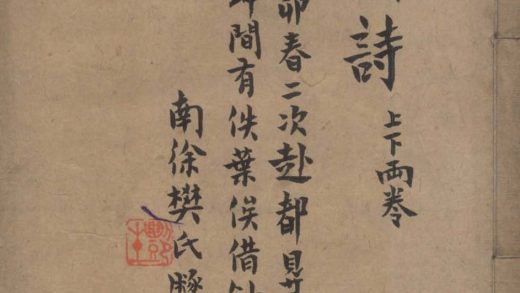 詩 上下兩卷
卯春二次赴都
間有佚葉俟借
南徐樊氏